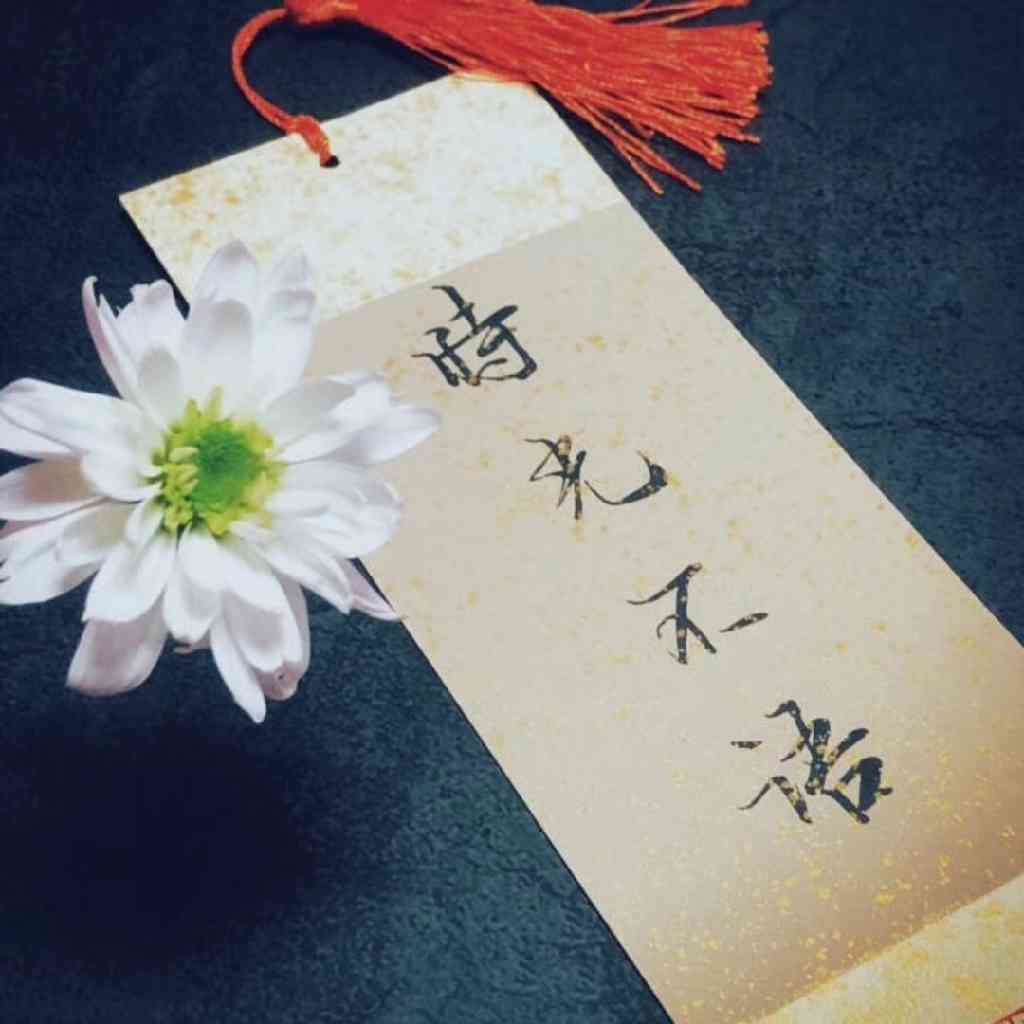 時光不語